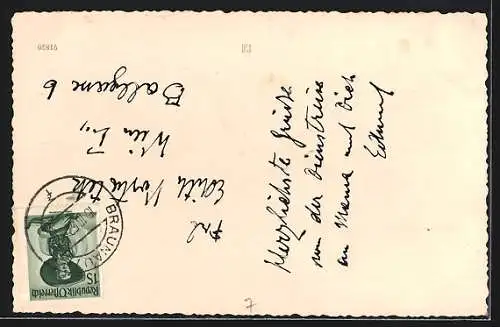 Herzlichste Grüße
von der Dienstreise
an Mama und Dich
Edmund
Frl.
Edith
Wien I.,
Ballgasse 6
BRAUNAU
1S
Republik Österreich
91820
7